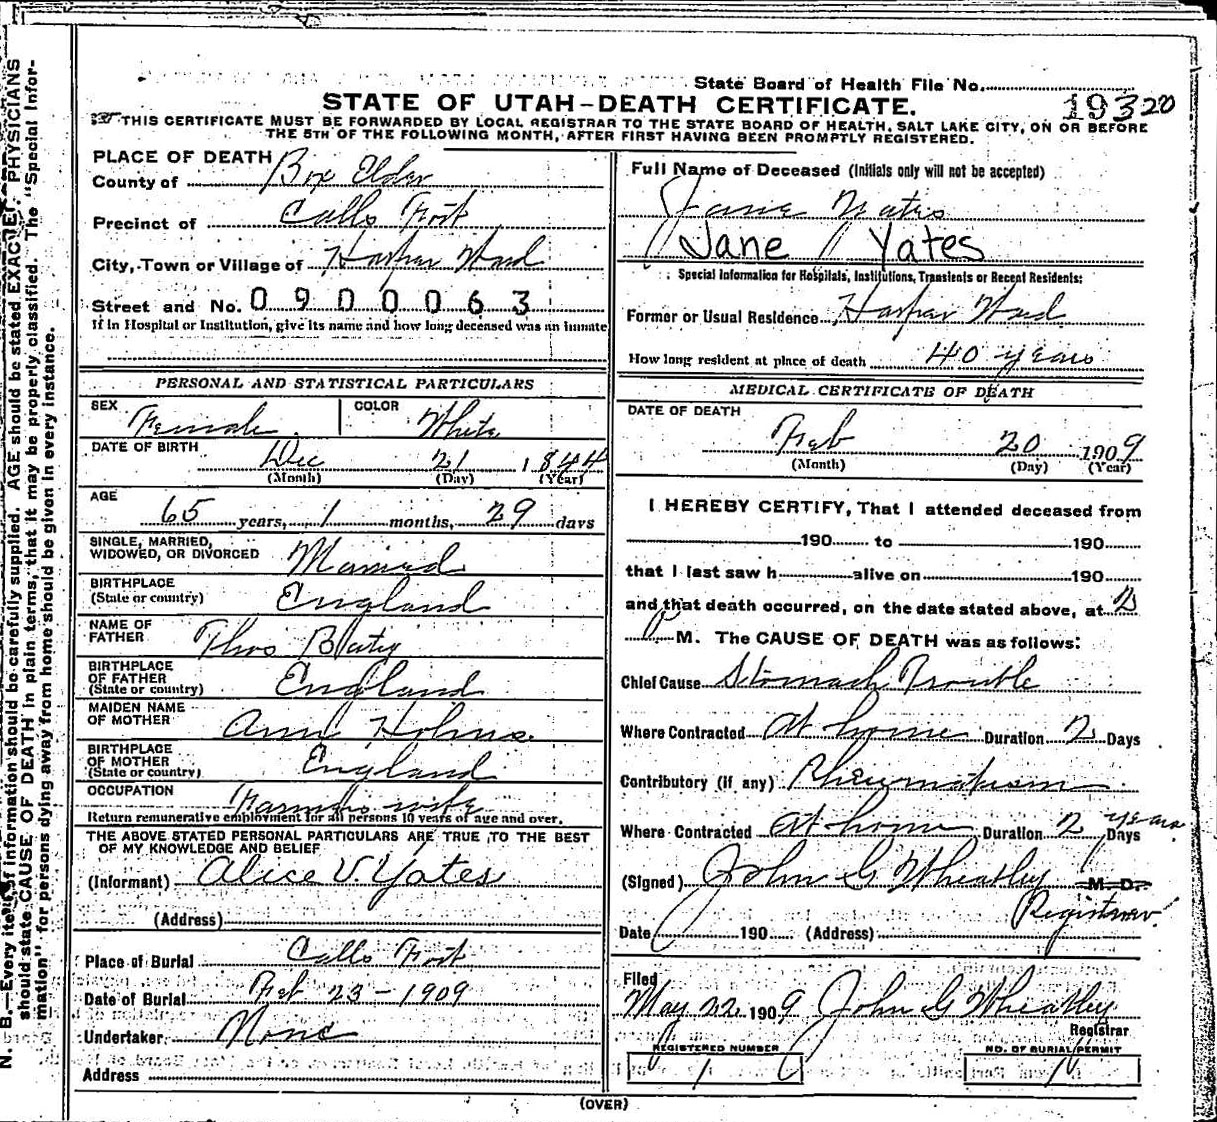 State Board of Health File No.
19320
STATE OF UTAH-DEATH CERTIFICATE.
THIS CERTIFICATE MUST BE FORWARDED BY LOCAL REGISTRAR TO THE STATE BOARD OF HEALTH, SALT LAKE CITY, ON OR BEFORE
THE 5TH OF THE FOLLOWING MONTH, AFTER FIRST HAVING BEEN PROMPTLY REGISTERED.
PLACE OF DEATH
County of Box Elder
Precinct of Calls Fort
City, Town or Village of Harper Ward
Street and No. 0900063
If in Hospital or Institution, give its name and how long deceased was an inmate
PERSONAL AND STATISTICAL PARTICULARS
SEX Female COLOR White
DATE OF BIRTH Dec 21 1844
(Month) (Day) (Year)
AGE 65 years, 1 months, 29 days
SINGLE, MARRIED,
WIDOWED, OR DIVORCED Married
BIRTHPLACE
(State or country) England
NAME OF
FATHER Thos
BIRTHPLACE
OF FATHER
(State or country) England
MAIDEN NAME
OF MOTHER Ann
BIRTHPLACE
OF MOTHER
(State or country) England
OCCUPATION Farmers wife
Return remunerative employment for all persons 10 years of age and over.
THE ABOVE STATED PERSONAL PARTICULARS ARE TRUE TO THE BEST
OF MY KNOWLEDGE AND BELIEF
(Informant) Alice V. Yates
(Address)
Place of Burial Calls Fort
Date of Burial Feb 23-1909
Undertaker None
Address
Full Name of Deceased (Initials only will not be accepted)
Jane Yates
Jane Yates
Special Information for Hospitals, Institutions, Transients or Recent Residents:
Former or Usual Residence Harper Ward
How long resident at place of death 40 years
MEDICAL CERTIFICATE OF DEATH
DATE OF DEATH
Feb 20 1909
(Month) (Day) (Year)
I HEREBY CERTIFY, That I attended deceased from
190 to 190
that I last saw h alive on 190
and that death occurred, on the date stated above, at 12
P M. The CAUSE OF DEATH was as follows:
Chief Cause Stomach Trouble
Where Contracted At home Duration 2 Days
Contributory (if any) Rheumatism
Where Contracted At home Duration 2 years Days
(Signed) John G Wheatley M. D.
Registrar
Date 190 (Address)
Filed
May 22 1909 John G Wheatley
Registrar
REGISTERED NUMBER NO. OF BURIAL PERMIT
(OVER)
N. B.—Every item of information should be carefully supplied. AGE should be stated EXACTLY. PHYSICIANS
should state CAUSE OF DEATH in plain terms, that it may be properly classified. The "Special Infor-
mation" for persons dying away from home should be given in every instance.